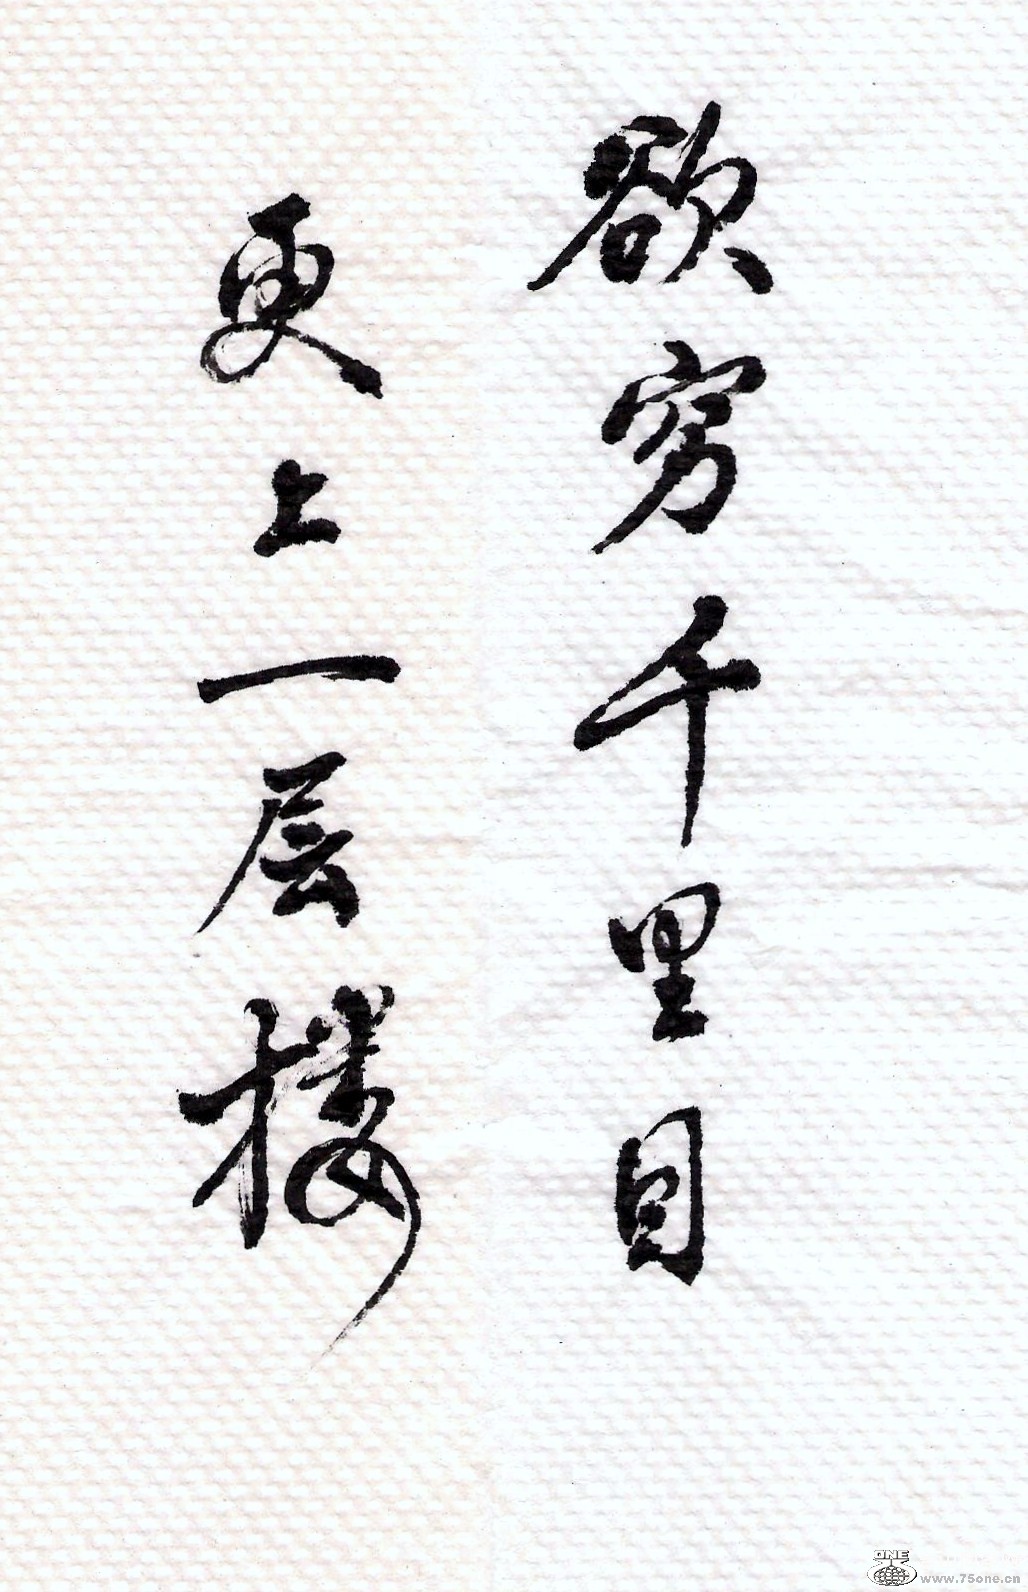 欲穷千里目
更上一层楼
ONE
www.75one.cn